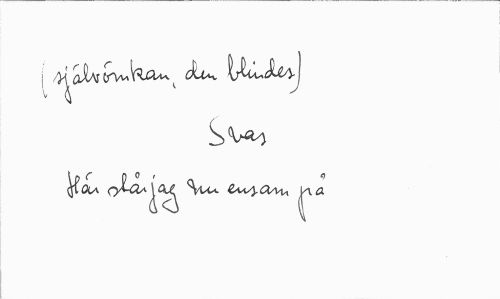 (självömkan, den blindes)
Svas
Här står jag nu ensam på